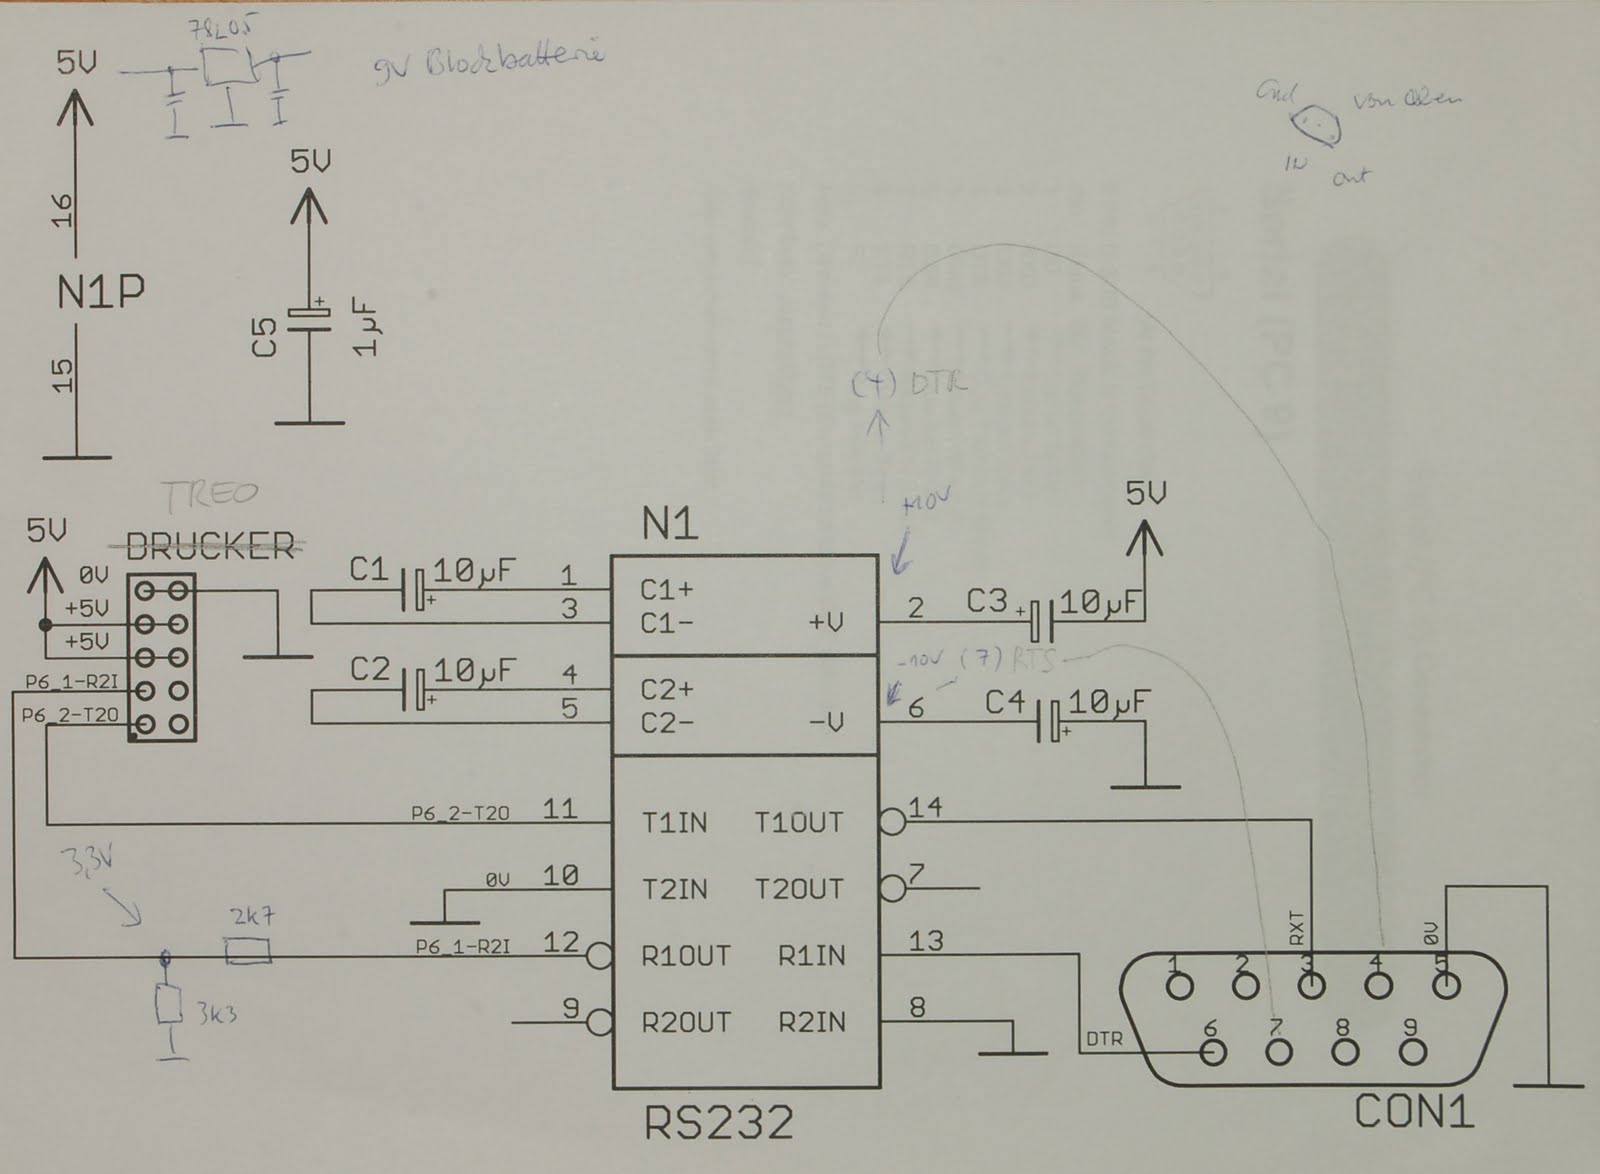 78L05
5V
9V Blockbatterie
Gnd
von oben
IN
out
16
N1P
15
5V
C5
+
1µF
(4) DTR
+10V
TREO
DRUCKER
5V
0V
+5V
+5V
P6_1-R2I
P6_2-T2O
C1
10µF
+
1
3
C2
10µF
+
4
5
N1
C1+
C1-
+V
C2+
C2-
-V
2
C3
+
10µF
5V
-10V (7) RTS
6
C4
10µF
+
P6_2-T2O
11
T1IN
T1OUT
14
3,3V
0V
10
T2IN
T2OUT
7
2k7
P6_1-R2I
12
R1OUT
R1IN
13
3k3
9
R2OUT
R2IN
8
RS232
RXT
0V
1 2 3 4 5
DTR
6 7 8 9
CON1